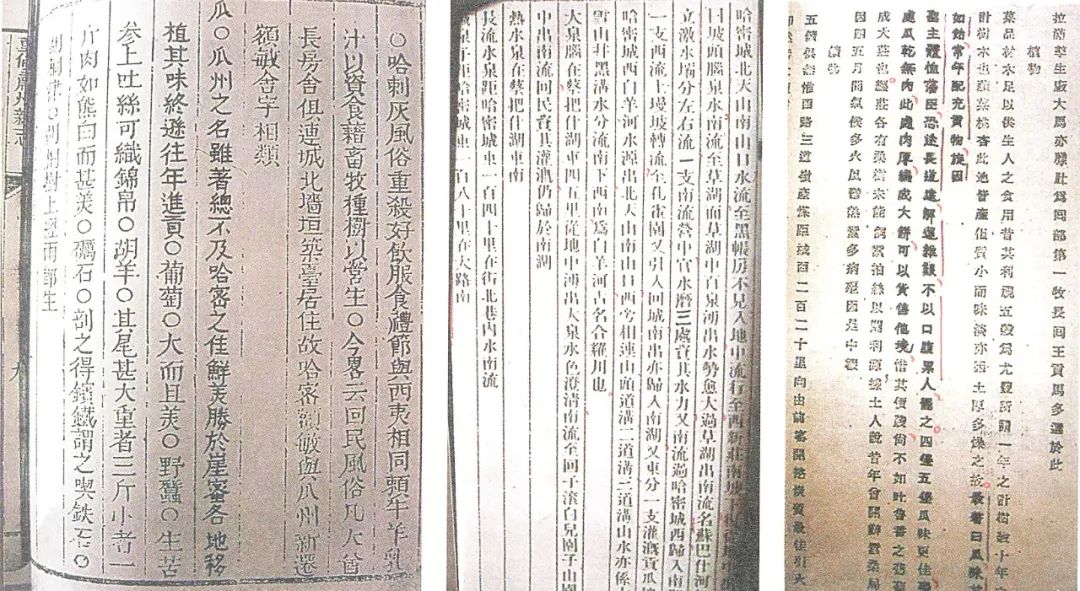 ○哈剌灰風俗重殺好飲服食禮節與西夷相同頼牛羊乳
汁以資食藉畜牧種樹以營生○今畧云回民風俗凡大酋
長房舍俱連城北墻垣築臺居住故哈密額敏與瓜州新遷
額敏舍字相類
瓜○瓜州之名雖著總不及哈密之佳鮮美勝於崖蜜各地移
植其味終遜往年進貢○葡萄○大而且美○野蠶○生苦
參上吐絲可織錦帛○胡羊○其尾甚大重者三斤小者一
片肉如熊白而甚美○礪石○剖之得鑌鐵謂之喫鉄石○
胡桐律○胡桐樹上經雨卽生
肅州新志
哈密城北天山南山口水流至黑帳房不見入地中流行至西新莊南坡下
曰坡頭腦泉水南流至草湖而草湖中自泉湧出水勢愈大過草湖出南流名蘇巴什河
立激水壩分左右流一支南流營中官水磨三處資其水力又南流過哈密城西歸入南
一支西流上壜坡轉流至孔雀園又引入回城南出亦歸入南湖又東分一支灌溉資瓜地
哈密城西白羊河水源出北天山南山口西旁相連山頭道溝二道溝三道溝山水亦係大
野山井黑溝水分流南下西南爲白羊河古名合羅川也
大泉腦在蔡把什湖東四五里從地中湧出大泉水色澄清南流至回子滾白兒園子山園
中出南流回民資其灌溉仍歸於南湖
熱水泉在蔡把什湖東南
長流水泉距哈密城東一百四十里在街北巷內水南流
泉子距哈密城東一百八十里在大路南
大馬亦願壯爲回部第一牧長回王貢馬多選於此
植物
菓品材水足以供生人之食用昔其利農五穀爲尤豐所謂一年之計樹穀十年之
計樹木也蘋菓桃杏此池皆產但質小而味淡亦惡土厚多燥之故最著曰瓜味
如飴常年配充貢物旋因
聖主體恤藩臣恐途長道遠解運維艱不以口腹累人罷之四堡五堡瓜味更佳
處瓜乾無肉此處肉厚編成大餅可以貨售他境惜其價賤尙不如吐魯番之葡萄
成大莊也 莊各有桑樹未能飼蠶抽絲以闢利源據土人說昔年曾開辦蠶桑局
因四五月間氣候多火以致熱蠶多病死因是中輟
礦物
五價俱無惟西路三道嶺產煤原城西二百二十里向由前 開挖煤質最佳引火